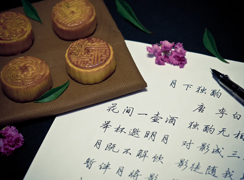 月下独酌
唐 李白
花间一壶酒 独酌无相
举杯邀明月 对影成三
月既不解饮 影徒随我
暂伴月将影